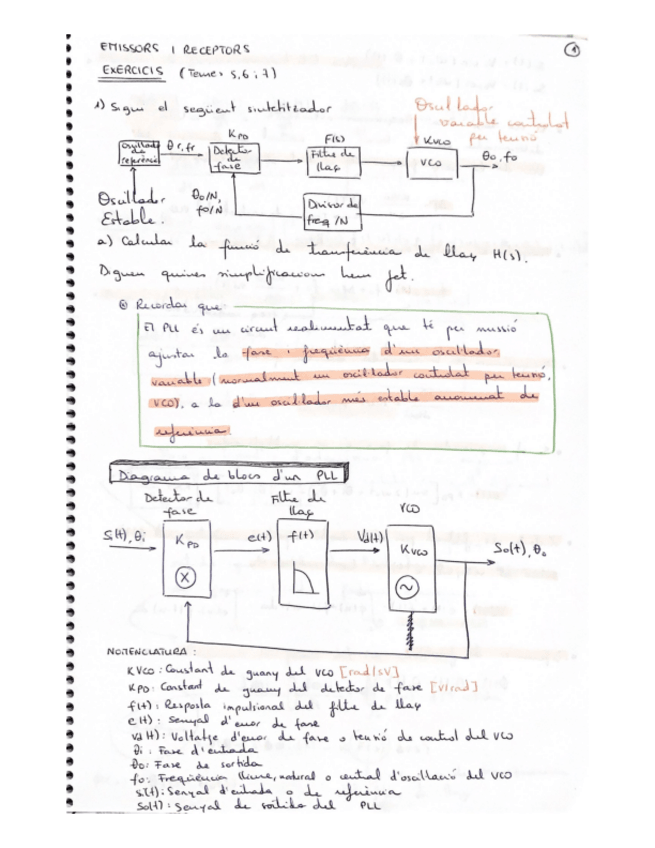 EMISSORS I RECEPTORS
1
EXERCICIS (Temes 5,6 i 7)
1) Sigui el següent sintetitzador
Oscil·lador
variable controlat
per tensió
Oscil·lador
de
referència
θr, fr
KPD
Detector
de
fase
F(s)
Filtre de
llaç
KVCO
VCO
θo, fo
Oscil·lador
Estable.
θo/N,
fo/N
Divisor de
freq /N
a) Calculeu la funció de transferència de llaç H(s).
Digueu quines simplificacions hem fet.
Recordar que:
El PLL és un circuit realimentat que té per missió
ajustar la fase i freqüència d'un oscil·lador
variable (normalment un oscil·lador controlat per tensió,
VCO), a la d'un oscil·lador més estable anomenat de
referència.
Diagrama de blocs d'un PLL
Detector de
fase
Filtre de
llaç
VCO
S(t), θi
KPD
X
e(t)
f(t)
Vd(t)
KVCO
So(t), θo
NOMENCLATURA:
KVCO: Constant de guany del VCO [rad/sV]
KPD: Constant de guany del detector de fase [V/rad]
f(t): Resposta impulsional del filtre de llaç
e(t): Senyal d'error de fase
Vd(t): Voltatge d'error de fase o tensió de control del VCO
θi: Fase d'entrada
θo: Fase de sortida
fo: Freqüència lliure, natural o central d'oscil·lació del VCO
Si(t): Senyal d'entrada o de referència
So(t): Senyal de sortida del PLL